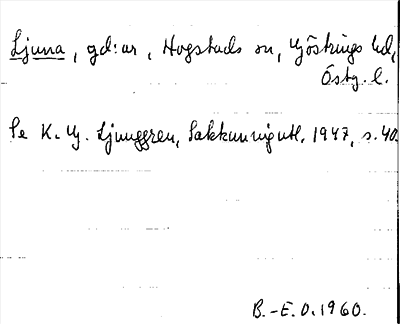 Ljuna, gd:ar, Hogstads sn, Göstrings hd,
Östg. l.
Se K. G. Ljunggren, Sakkunnigutl. 1947, s. 40.
B.-E. O. 1960.